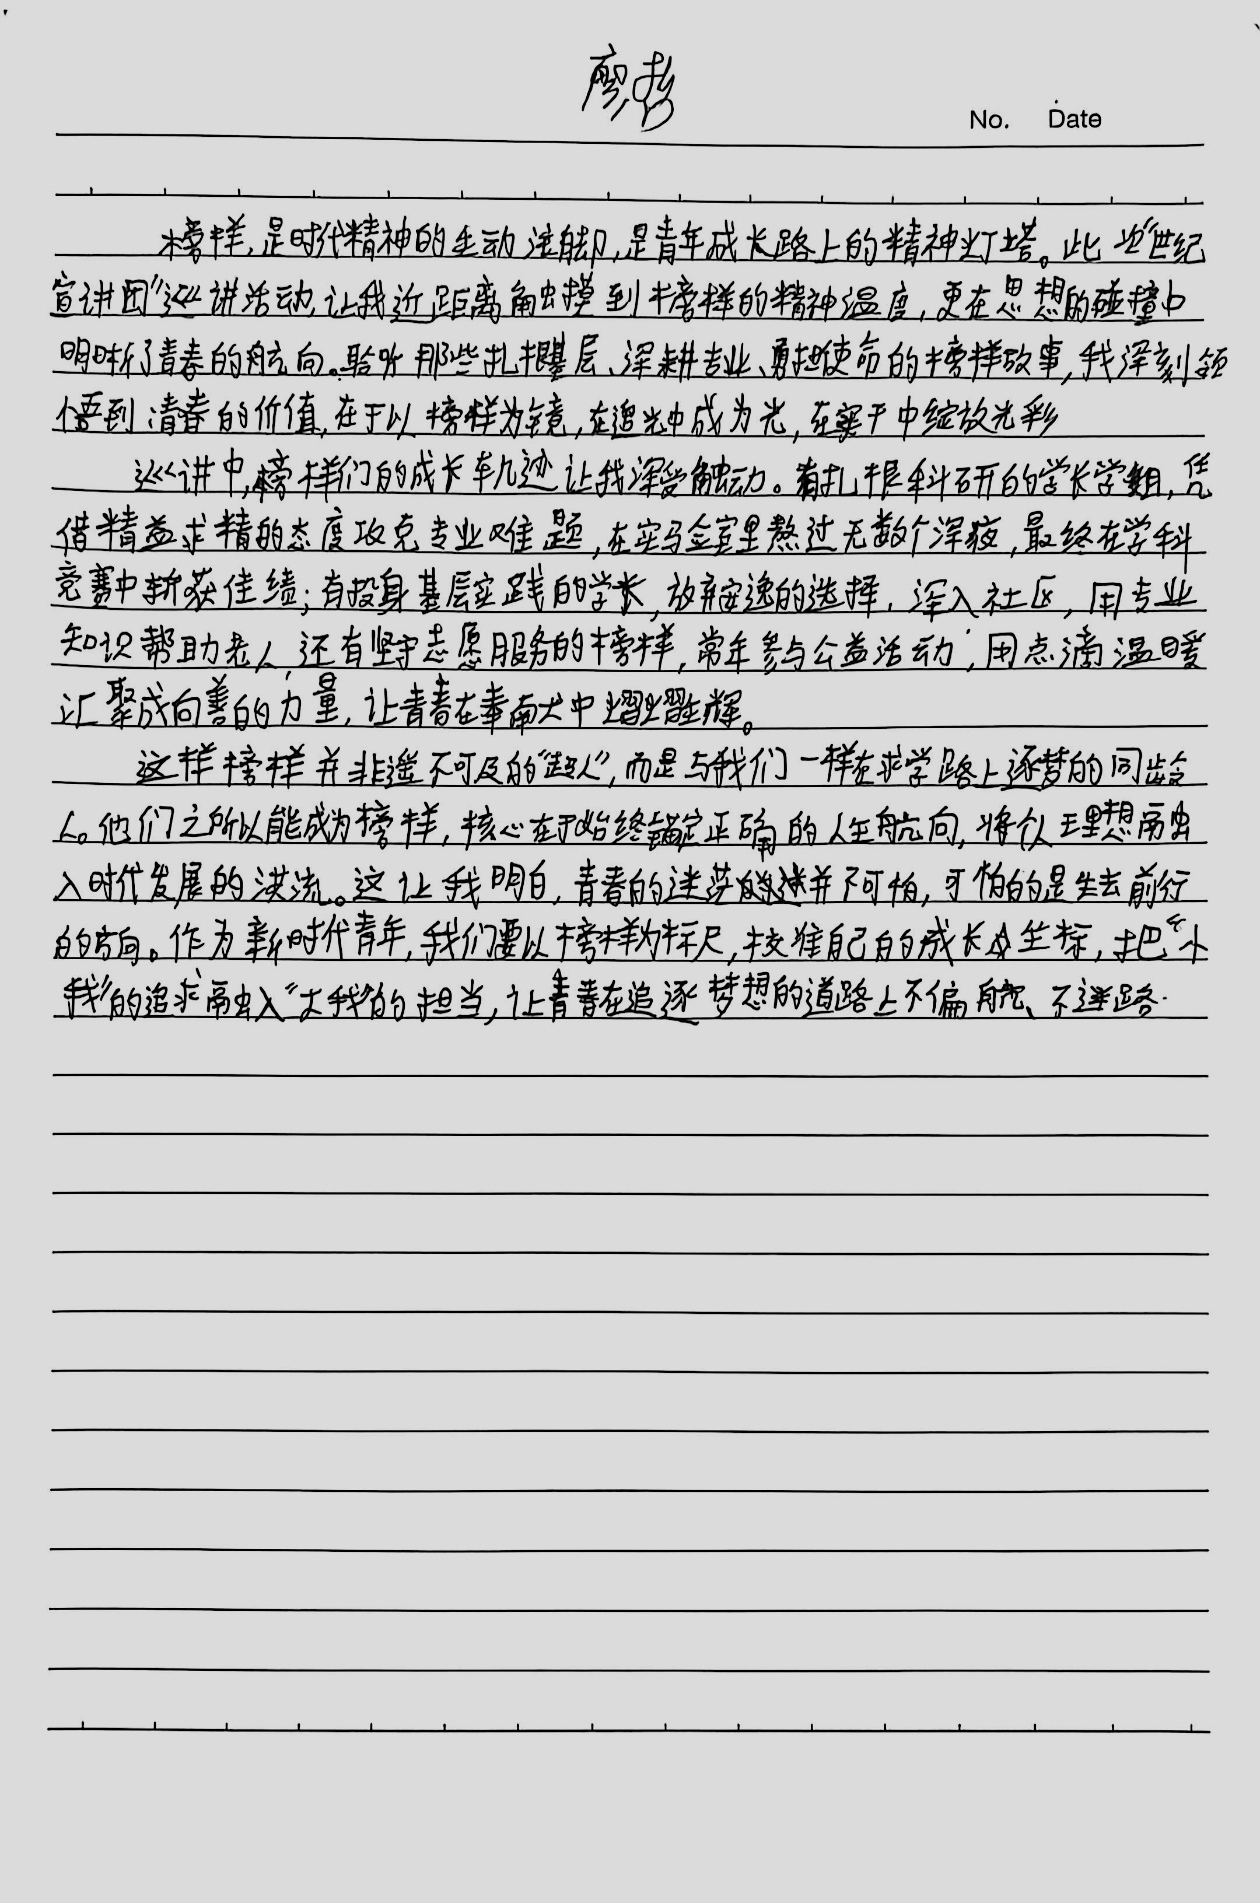 廖彬
No. Date
榜样,是时代精神的生动注脚,是青年成长路上的精神灯塔。此次"世纪
宣讲团"巡讲活动,让我近距离触摸到榜样的精神温度,更在思想的碰撞中
明晰了青春的航向。聆听那些扎根基层、深耕专业、勇担使命的榜样故事,我深刻领
悟到清春的价值,在于以榜样为镜,在追光中成为光,在实干中绽放光彩
巡讲中,榜样们的成长轨迹让我深受触动。有扎根科研的学长学姐,凭
借精益求精的态度攻克专业难题,在实马金室里熬过无数个深夜,最终在学科
竞赛中斩获佳绩;有投身基层实践的学长,放弃安逸的选择,深入社区,用专业
知识帮助老人,还有坚守志愿服务的榜样,常年参与公益活动,用点滴温暖
汇聚成向善的力量,让青春在奉南大中熠熠生辉。
这样榜样并非遥不可及的"超人",而是与我们一样在求学路上逐梦的同龄
人。他们之所以能成为榜样,核心在于始终锚定正确的人生航向,将个人理想融
入时代发展的洪流。这让我明白,青春的迷茫并不可怕,可怕的是失去前行
的方向。作为新时代青年,我们要以榜样为标尺,校准自己的成长坐标,把"小
我"的追求融入"大我"的担当,让青春在追逐梦想的道路上不偏航、不迷路.